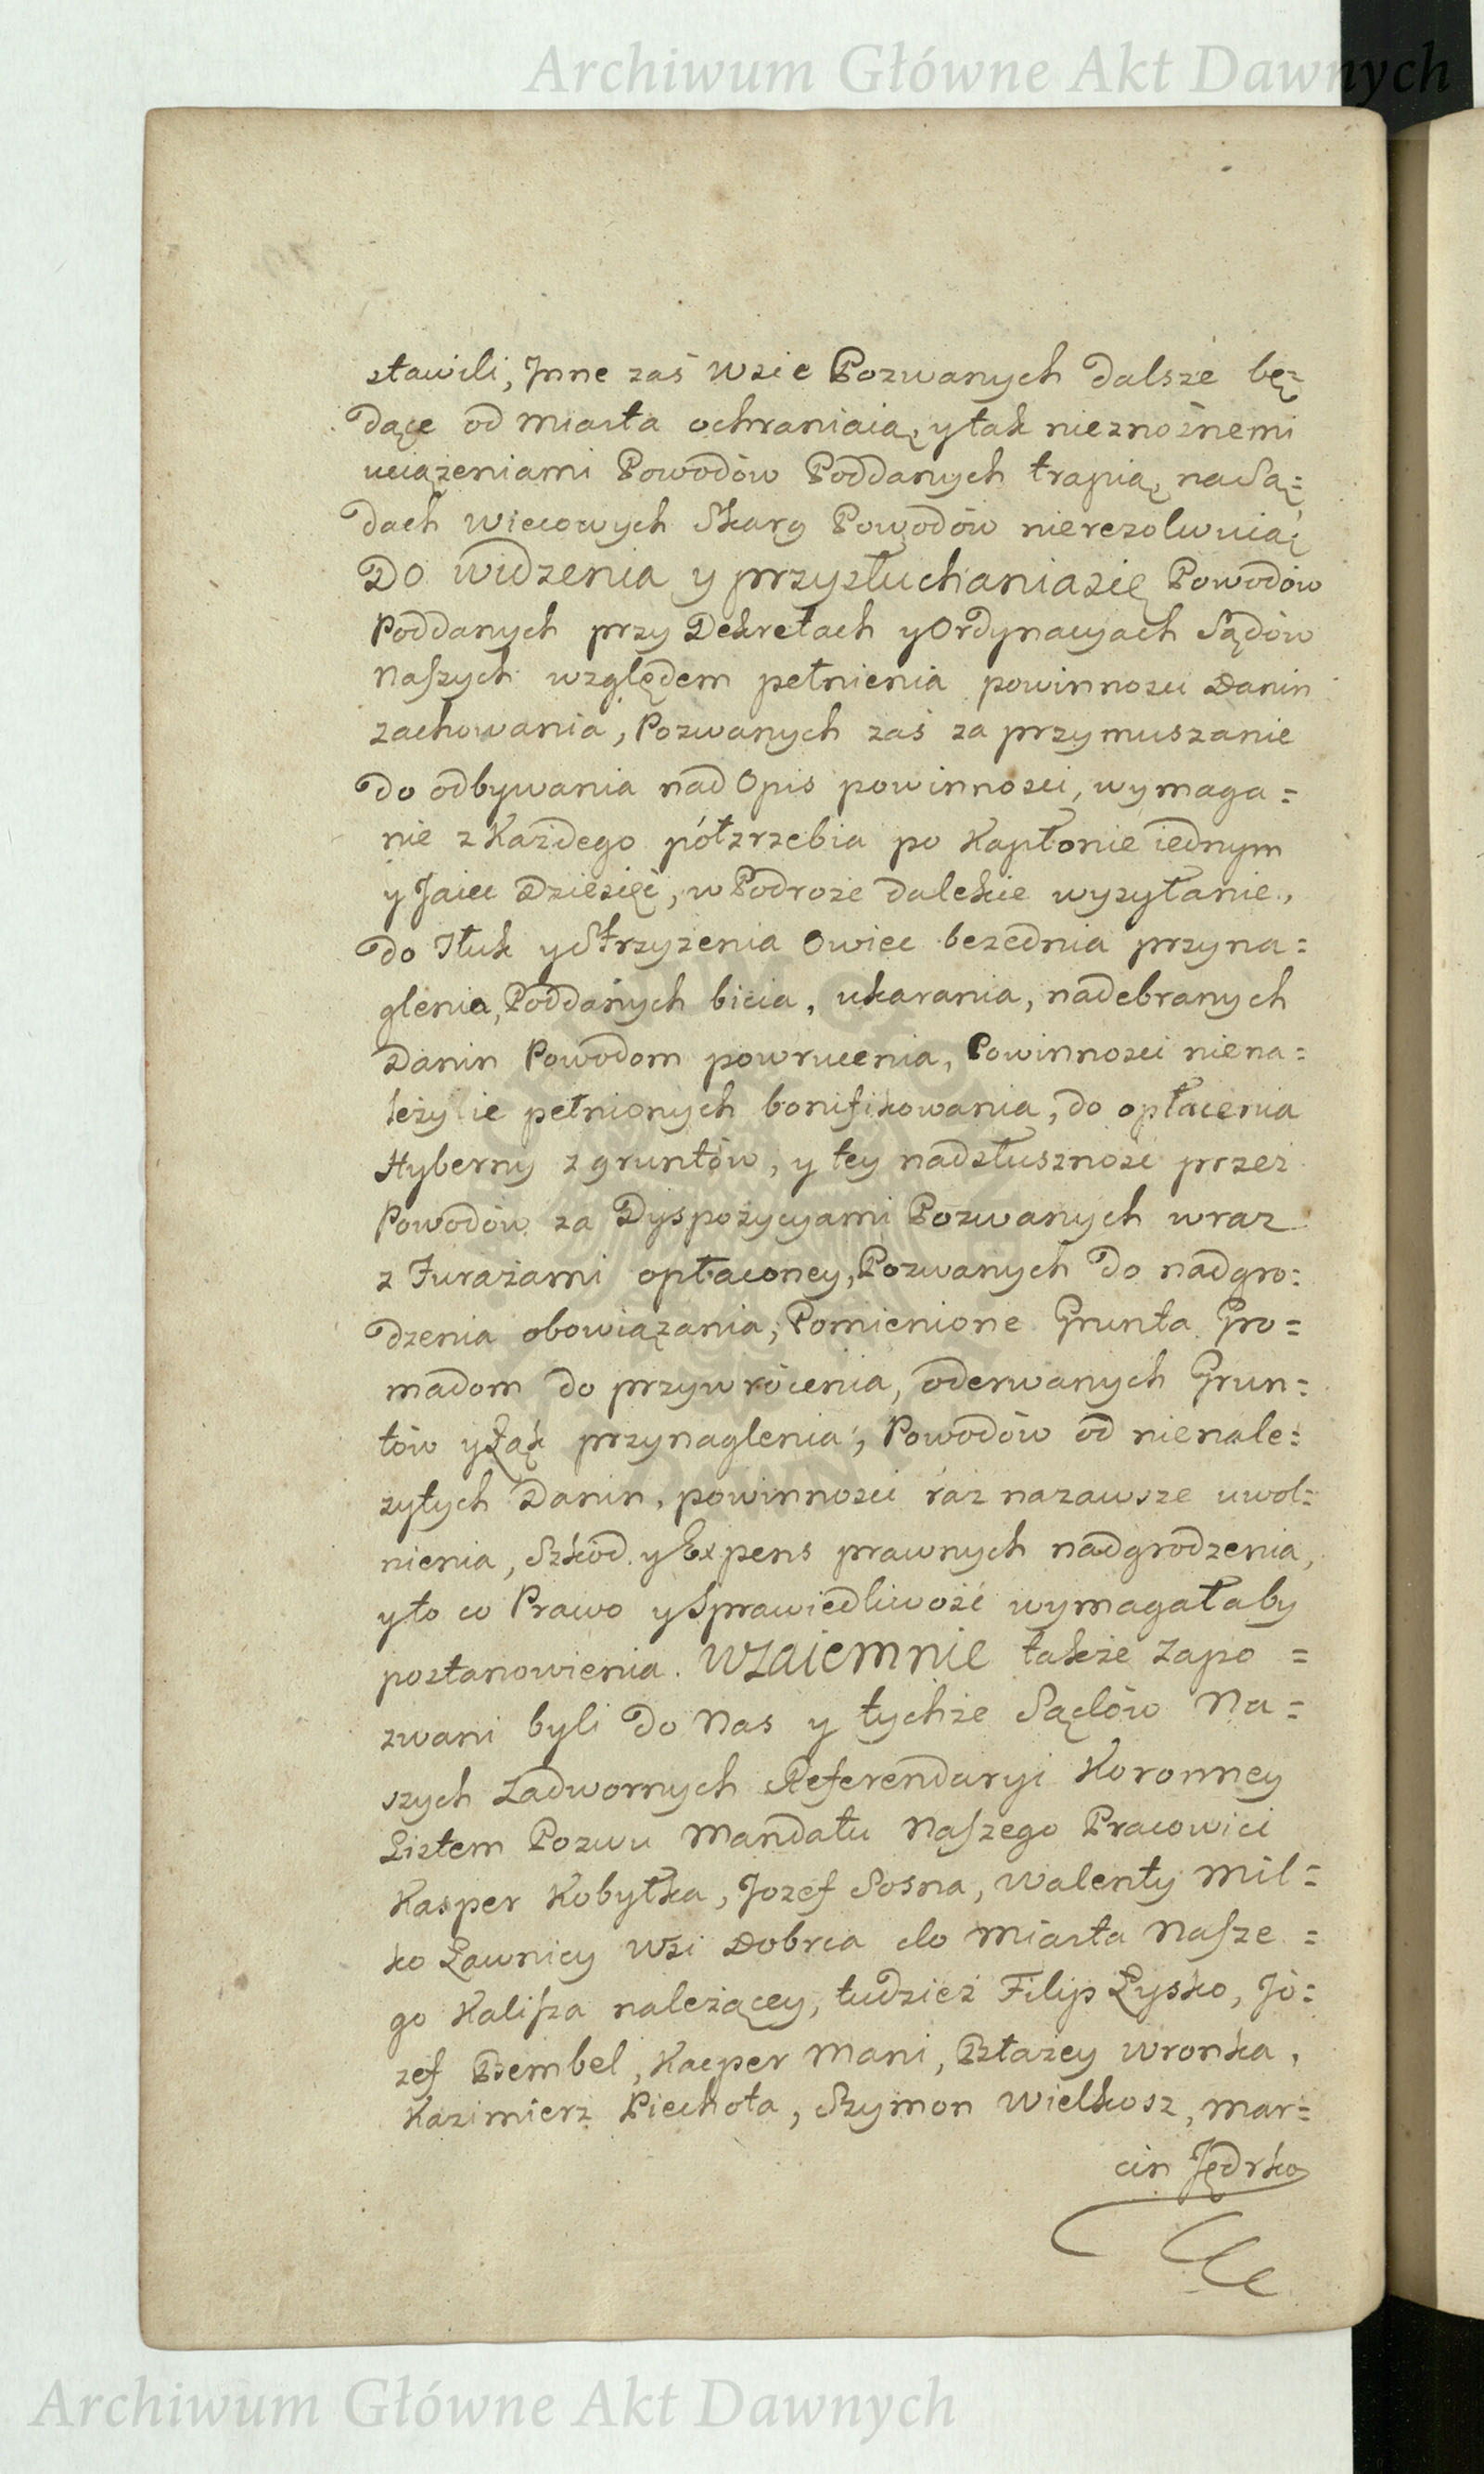 Archiwum Główne Akt Dawnych
stawili, Jnne zaś wsie Pozwanych dalsze bę=
dące od miasta ochraniaią, y tak nieznośnemi
uciązeniami Powodów Poddanych trapią, na Są=
dach wiecowych Skarg Powodów nierezolwuią
Do widzenia y przysłuchania się Powodów
Poddanych przy Dekretach y Ordynacyach Sądów
Naszych względem pełnienia powinnosci Danin
zachowania, Pozwanych zaś za przymuszanie
do odbywania nad Opis powinnosci, wymaga=
nie z Każdego półzrzebia po Kapłonie iednym
y Jaiec Dziesięć, w Podroże dalekie wysyłanie,
do Tłuk y Strzyzenia Owiec bezednia przyna=
glenia, Poddanych bicia, ukarania, nadebranych
Danin Powodom powrucenia, Powinnosci niena=
leżycie pełnionych bonifikowania, do opłacenia
Hyberny z gruntów, y tey nadsłuszność przez
Powodów za Dyspozycyami Pozwanych wraz
z Furażami opłaconey, Pozwanych do nadgro=
dzenia obowiązania, Pomienione Grunta Gro=
madom do przywrócenia, oderwanych Grun=
tów y Łąk przynaglenia, Powodów od nienale=
zytych Danin, powinnosci raz nazawsze uwol=
nienia, Szkód y Expens prawnych nadgrodzenia,
y to co Prawo y Sprawiedliwość wymagałaby
postanowienia. Wzaiemnie także Zapo=
zwani byli do Nas y tychże Sądów Na=
szych Zadwornych Referendaryi Koronney
Listem Pozwu Mandatu Naszego Pracowici
Kasper Kobyłka, Jozef Sosna, Walenty Mil=
ko Ławnicy Wsi Dobrca do Miasta Nasze=
go Kalisza należącey, tudzież Filip Łysko, Jó=
zef Bembel, Kacper Mani, Błażey Wronka,
Kazimierz Piechota, Szymon Wielkosz, Mar=
cin Jędrko
Archiwum Główne Akt Dawnych